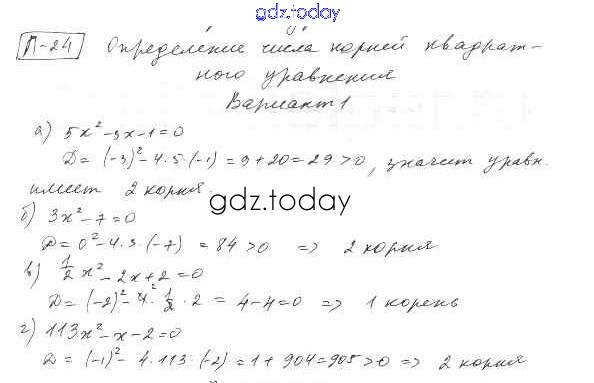 gdz.today
П-24 Определе́ние числа корней квадрат-
ного уравнения
Вариант 1
а) 5x² - 3x - 1 = 0
D = (-3)² - 4·5·(-1) = 9 + 20 = 29 > 0, значит уравн.
имеет 2 корня.
gdz.today
б) 3x² - 7 = 0
D = 0² - 4·3·(-7) = 84 > 0 => 2 корня
в) 1/2 x² - 2x + 2 = 0
D = (-2)² - 4·1/2·2 = 4 - 4 = 0 => 1 корень
г) 113x² - x - 2 = 0
D = (-1)² - 4·113·(-2) = 1 + 904 = 905 > 0 => 2 корня